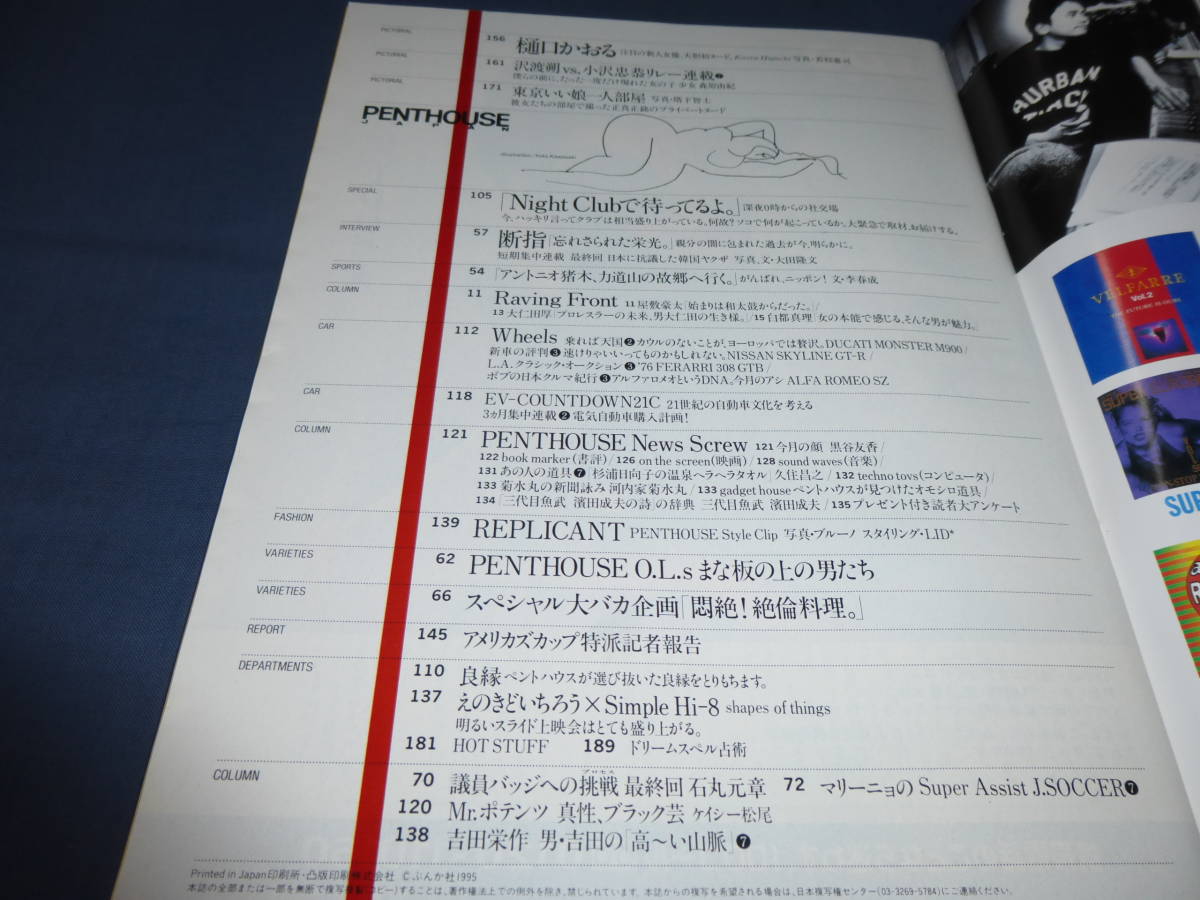 PICTORIAL
156 樋口かおる 注目の新人女優、大胆初ヌード。Kaoru Higuchi 写真・若杉憲司
PICTORIAL
161 沢渡朔vs.小沢忠恭リレー連載❷
僕らの前に、たった一度だけ現れた女の子 少女
PICTORIAL
171 東京いい娘一人部屋 写真・塔下智士
彼女たちの部屋で撮った正真正銘のプライベートヌード
PENTHOUSE
JAPAN
illustration / Yoko Kawasaki
SPECIAL
105 「Night Clubで待ってるよ。」深夜0時からの社交場
今、ハッキリ言ってクラブは相当盛り上がっている。何故? ソコで何が起こっているか。大緊急で取材、お届けする。
INTERVIEW
57 断指「忘れさられた栄光。」親分の闇に包まれた過去が今、明らかに。
短期集中連載 最終回 日本に抗議した韓国ヤクザ 写真、文・大田隆文
SPORTS
54 「アントニオ猪木、力道山の故郷へ行く。」がんばれ、ニッポン! 文・李春成
COLUMN
11 Raving Front 11 屋敷豪太「始まりは和太鼓からだった。」/
13 大仁田厚「プロレスラーの未来、男大仁田の生き様。」/15 白都真理「女の本能で感じる、そんな男が魅力。」
CAR
112 Wheels 乗れば天国❷カウルのないことが、ヨーロッパでは贅沢。DUCATI MONSTER M900/
新車の評判❸速けりゃいいってものかもしれない。NISSAN SKYLINE GT-R/
L.A.クラシック・オークション❸'76 FERARRI 308 GTB/
ボブの日本クルマ紀行❸アルファロメオというDNA。今月のアシ ALFA ROMEO SZ
CAR
118 EV-COUNTDOWN21C 21世紀の自動車文化を考える
3ヵ月集中連載❷電気自動車購入計画!
COLUMN
121 PENTHOUSE News Screw 121 今月の顔 黒谷友香/
122 book marker(書評)/126 on the screen(映画)/128 sound waves(音楽)/
131 あの人の道具❼「杉浦日向子の温泉ヘラヘラタオル」久住昌之/132 techno toys(コンピュータ)/
133 菊水丸の新聞詠み 河内家菊水丸/133 gadget house ペントハウスが見つけたオモシロ道具/
134 「三代目魚武 濱田成夫の詩」の辞典 三代目魚武 濱田成夫/135 プレゼント付き読者大アンケート
FASHION
139 REPLICANT PENTHOUSE Style Clip 写真・ブルーノ スタイリング・LID*
VARIETIES
62 PENTHOUSE O.L.s まな板の上の男たち
VARIETIES
66 スペシャル大バカ企画「悶絶! 絶倫料理。」
REPORT
145 アメリカズカップ特派記者報告
DEPARTMENTS
110 良縁 ペントハウスが選び抜いた良縁をとりもちます。
137 えのきどいちろう×Simple Hi-8 shapes of things
明るいスライド上映会はとても盛り上がる。
181 HOT STUFF 189 ドリームスペル占術
COLUMN
70 議員バッジへの挑戦 プロセス 最終回 石丸元章 72 マリーニョの Super Assist J.SOCCER❼
120 Mr.ポテンツ 真性、ブラック芸 ケイシー松尾
138 吉田栄作 男・吉田の「高〜い山脈」❼
Printed in Japan 印刷所・凸版印刷株式会社 ©ぶんか社1995
本誌の全部または一部を無断で複写複製(コピー)することは、著作権法上での例外を除き、禁じられています。本誌からの複写を希望される場合は、日本複写権センター(03-3269-5784)にご連絡ください。
AURBAN
VELFARRE
Vol.2
SUPER
SUP